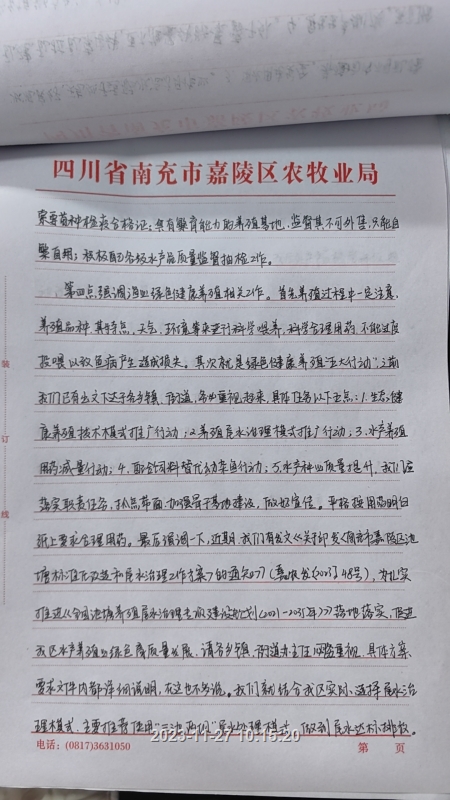 四川省南充市嘉陵区农牧业局
索要苗种检疫合格证；具有繁育能力的养殖基地，监督其不可外售，只能自
繁自用；积极配合各级水产品质量监督抽检工作。
第四点强调渔业绿色健康养殖相关工作。首先养殖过程中一定注意，
养殖品种，其特点、天气、环境等来进行科学喂养，科学合理用药，不能过度
投喂以致鱼病产生造成损失。其次就是绿色健康养殖"五大行动"，之前
我们已有出文下达于各乡镇、街道，务必重视起来，具体任务以下五点：1.生态健
康养殖技术模式推广行动；2.养殖尾水治理模式推广行动；3.水产养殖
用药减量行动；4.配合饲料替代幼杂鱼行动；5.水产种业质量提升，我们应
落实职责任务，抓点带面，加强骨干基地建设，做好宣传。严格按用药明白
纸上要求合理用药。最后强调一下，近期，我们有发文《关于印发<南充市嘉陵区池
塘标准化改造和尾水治理工作方案>的通知》（嘉农发〔2023〕48号），为扎实
推进《全国池塘养殖尾水治理专项建设规划（2021-2035年）》落地落实，促进
我区水产养殖业绿色高质量发展，请各乡镇、街道办主任回去重视，具体方案、
要求文件内都详细说明，在这也不多说。我们就结合我区实际，选择尾水治
理模式，主要推荐使用"三池两坝"尾水处理模式，做到尾水达标排放。
2023-11-27 10:15:20
电话：(0817)3631050
第 页
装
订
线